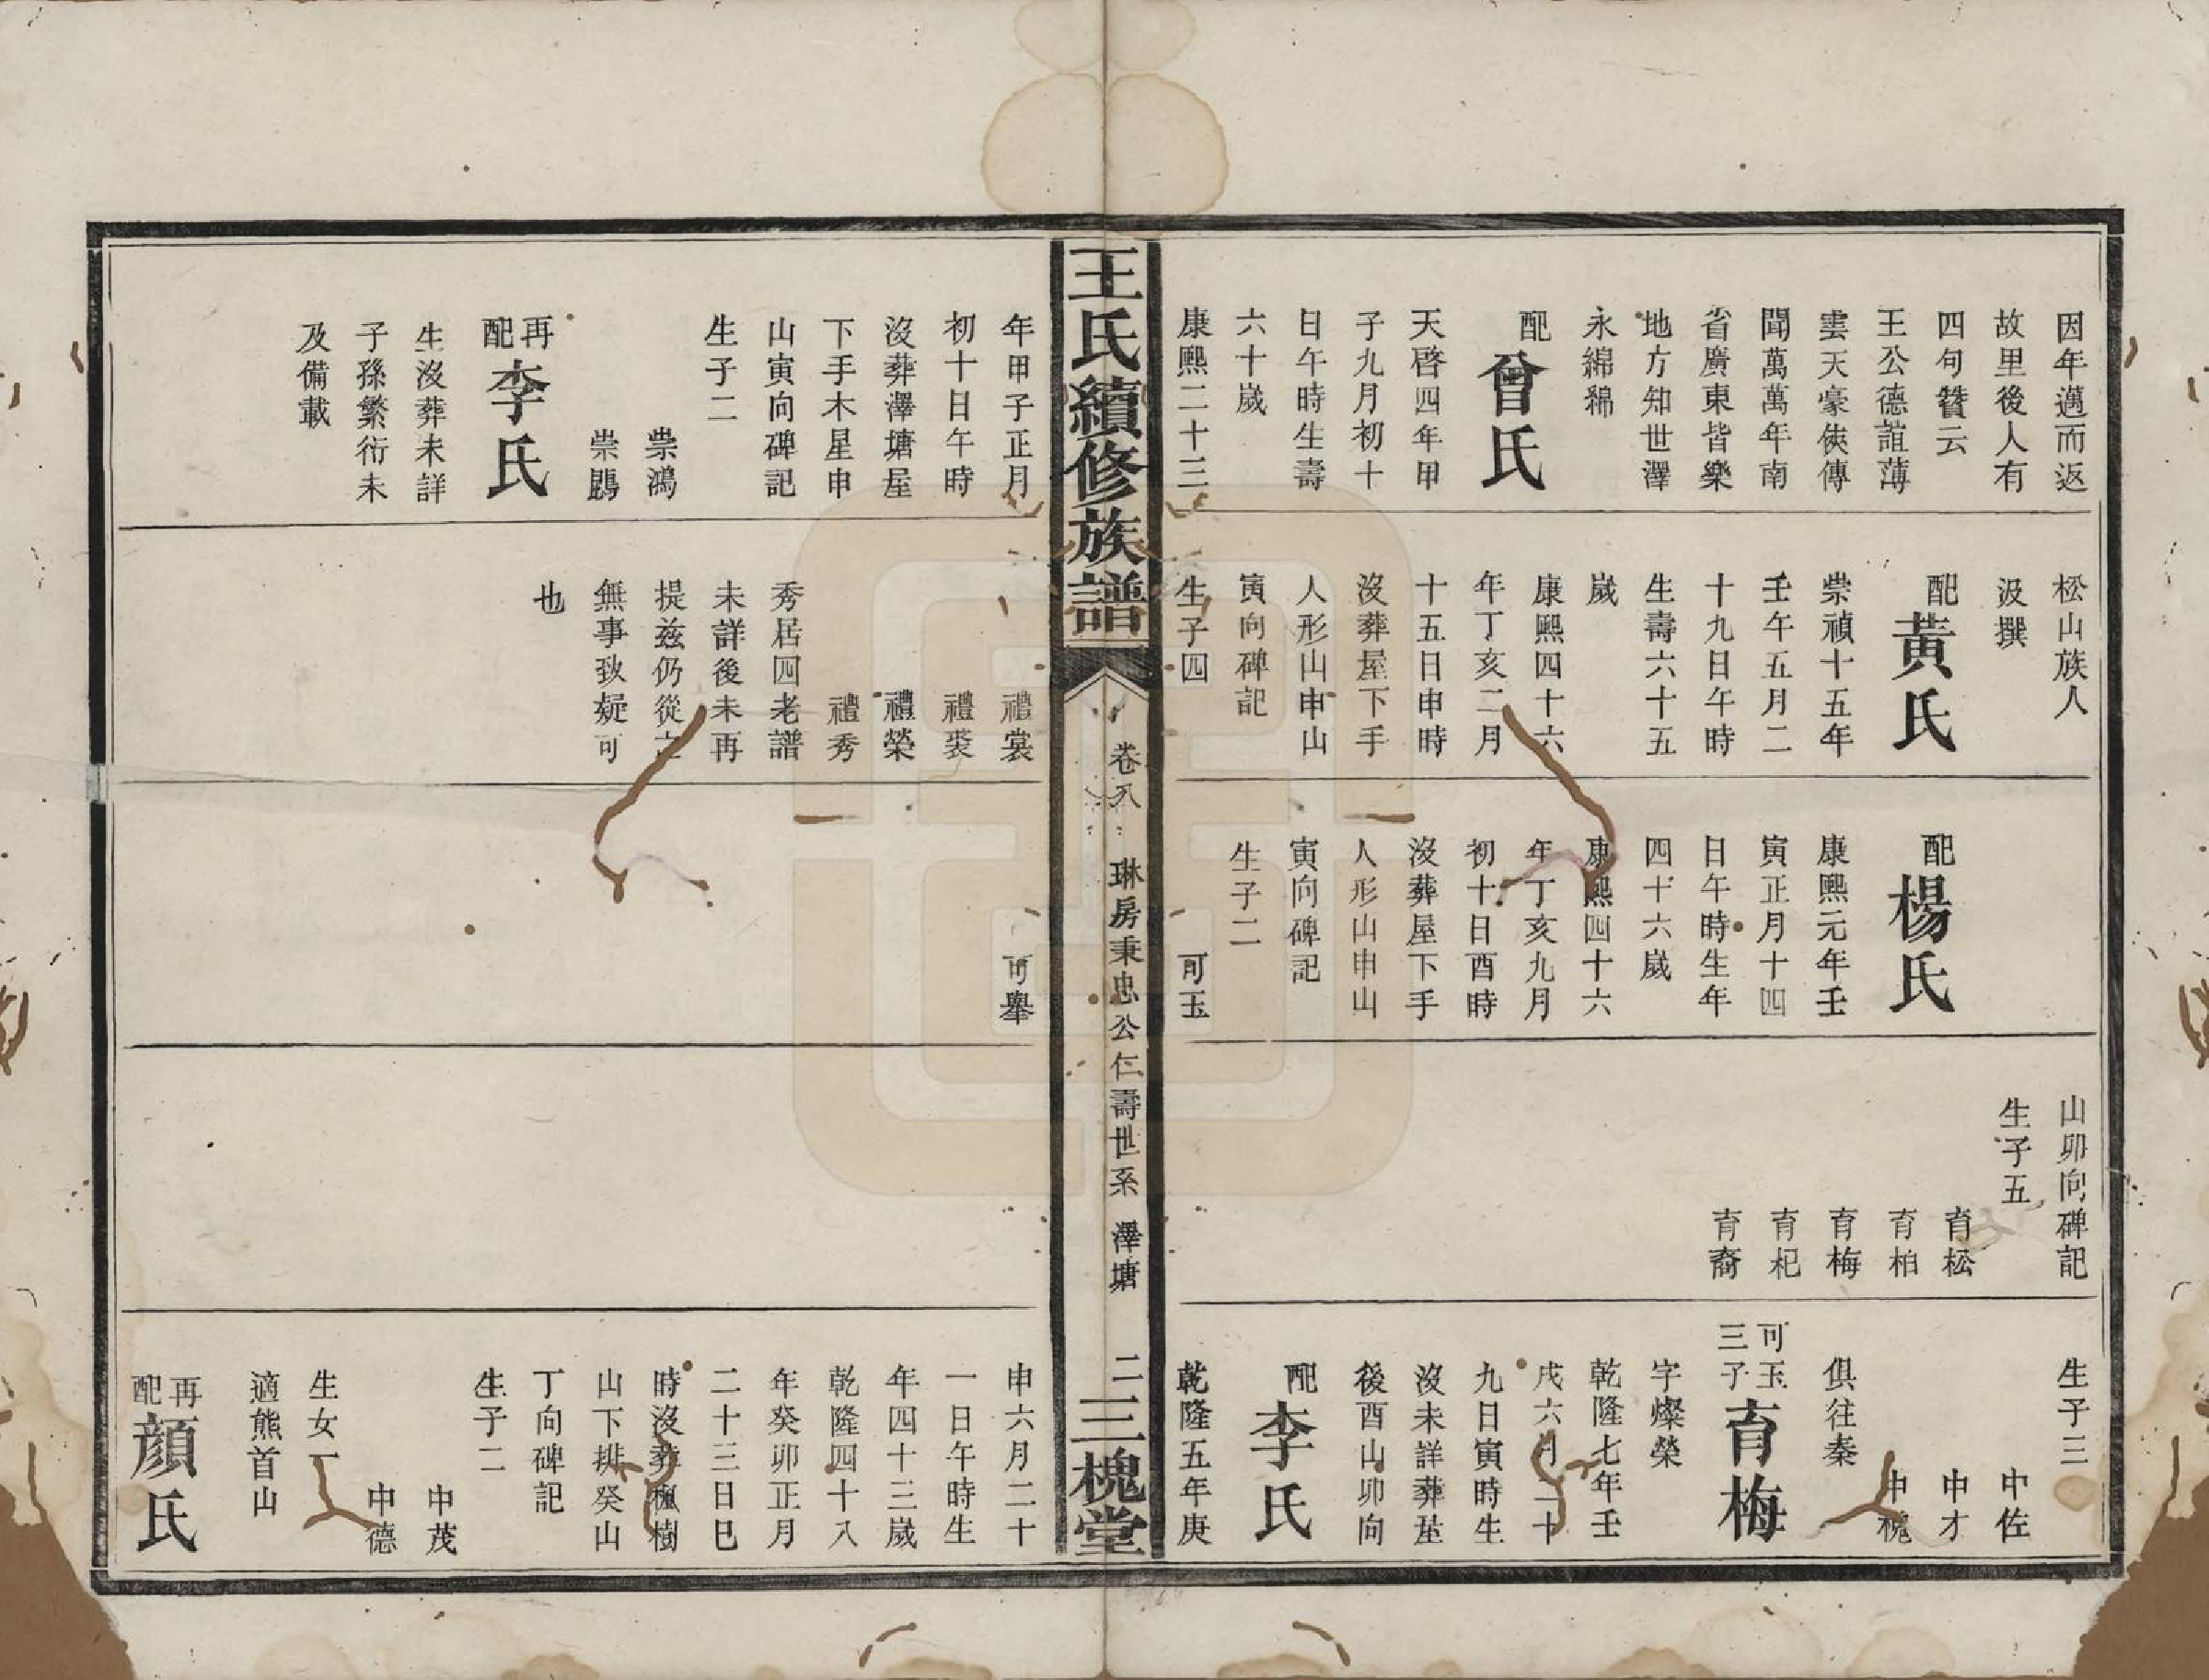 因年邁而返
故里後人有
四句贊云
王公德誼薄
雲天豪俠傳
聞萬萬年南
省廣東皆樂
地方知世澤
永綿綿
配曾氏
天啓四年甲
子九月初十
日午時生壽
六十歲
康熙二十三
松山族人
汲撰
配黃氏
崇禎十五年
壬午五月二
十九日午時
生壽六十五
歲
康熙四十六
年丁亥二月
十五日申時
沒葬屋下手
人形山申山
寅向碑記
生子四
配楊氏
康熙元年壬
寅正月十四
日午時生年
四十六歲
康熙四十六
年丁亥九月
初十日酉時
沒葬屋下手
人形山申山
寅向碑記
生子二
可玉
山卯向碑記
生子五
育松
育柏
育梅
育杞
育裔
生子三
中佐
中才
中槐
俱往秦
可玉三子育梅
字燦榮
乾隆七年壬
戌六月二十
九日寅時生
沒未詳葬基
後酉山卯向
配李氏
乾隆五年庚
王氏續修族譜
卷八
琳房秉忠公仁壽世系
澤塘
二
三槐堂
年甲子正月
初十日午時
沒葬澤塘屋
下手木星申
山寅向碑記
生子二
崇鴻
崇鵾
再配李氏
生沒葬未詳
子孫繁衍未
及備載
禮裳
禮裘
禮榮
禮秀
秀居四老譜
未詳後未再
提茲仍從之
無事致疑可
也
可舉
申六月二十
一日午時生
年四十三歲
乾隆四十八
年癸卯正月
二十三日巳
時沒葬楓樹
山下排癸山
丁向碑記
生子二
中茂
中德
生女一
適熊首山
再配顏氏